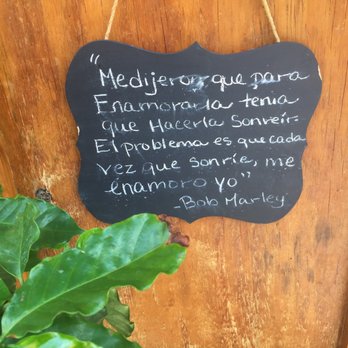 "Me dijeron que para
Enamorarla tenia
que Hacerla Sonreir.
El problema es que cada
vez que sonríe, me
enamoro yo"
-Bob Marley